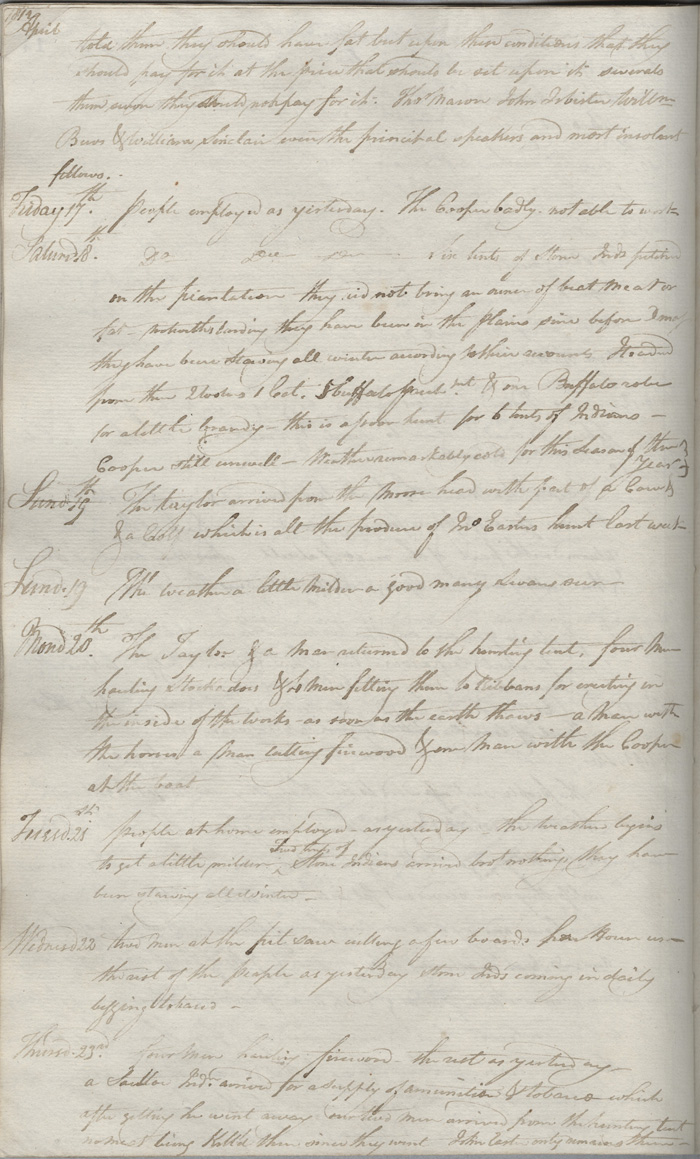 1812 April
told them they should have fat but upon these conditions that they
should pay for it at the price that should be set upon it severals
them swore they should not pay for it. Thos Mason John Isbister Willm
Bews & William Sinclair were the principal speakers and most insolent
fellows.
Friday 17th. people employed as yesterday. The Cooper badly. not able to work
Saturd 18th. Do Do Do Six tents of Stone Inds pitched
on the plantation they did not bring an ounce of beat meat or
fat - notwithstanding they have been in the plains since before
they have been starving all winter according to their accounts
from them 2 1 Cat. 8 buffalo & one Buffalo robe
for a little brandy - this is a poor hunt for 6 tents of Indians -
Cooper still unwell - Weather remarkably cold for this Season of the Year
Sund 19th The taylor arrived from the Moose head with part of 2 Cows
& a Calf which is all the produce of Jno Easters hunt last week
Sund. 19 The weather a little milder a good many Swans seen
Mond 20th. The Taylor & a man returned to the hunting tent, four Men
hauling Stockades & men fitting them to Ribbans for erecting on
the inside of the works - as soon as the earth thaws - a man with
the horses a man cutting firewood & one Man with the Cooper
at the boat
Tuesd. 21st people at home employed as yesterday the weather begins
to get a little milder tents of Stone Indians arrived brot nothing they have
been starving all winter -
Wednesd 22 two men at the pit saw cutting a few boards for House use
the rest of the people as yesterday Stone Inds coming in daily
begging tobacco -
Thursd. 23rd. four Men hauling firewood - the rest as yesterday -
a Indn arrived for a supply of ammunition & tobacco which
after getting he went away our two men arrived from the hunting tent
no meat being killed there since they went John Easter only remains there -